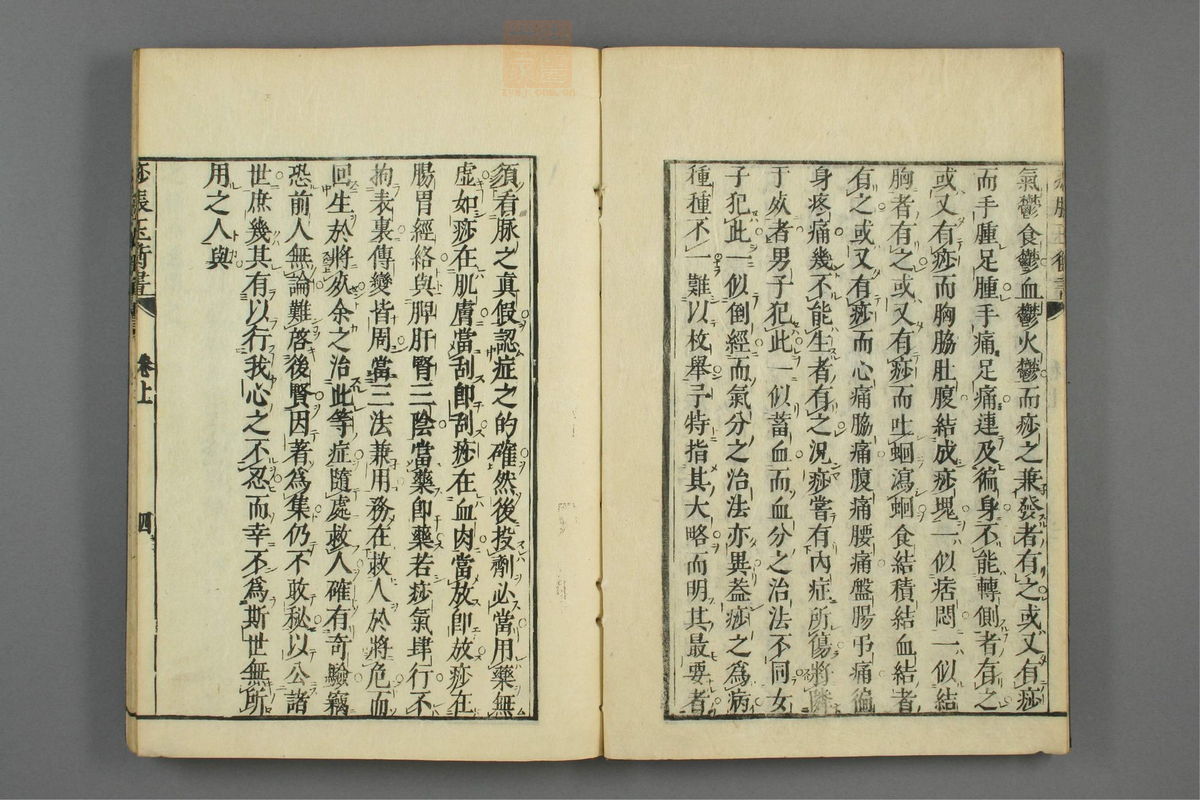 氣鬱食鬱血鬱火鬱而痧之兼發者有之或又有痧
而手腫足腫手痛足痛連及徧身不能轉側者有之
或又有痧而胸脇肚腹結成痧塊一似痞悶一似結
胸者有之或又有痧而吐蛔瀉蛔食結積結血結者
有之或又有痧而心痛脇痛腹痛腰痛盤腸弔痛徧
身疼痛幾不能生者有之況痧嘗有內症所傷將隣
于死者男子犯此一似蓄血而血分之治法不同女
子犯此一似倒經而氣分之治法亦異葢痧之爲病
種種不一難以枚舉予特指其大略而明其最要者
須看脉之真假認症之的確然後投劑必當用藥無
虛如痧在肌膚當刮卽刮痧在血肉當放卽放痧在
腸胃經絡與脾肝腎三陰當藥卽藥若痧氣肆行不
拘表裏傳變皆周當三法兼用務在救人於將危而
回生於將死余之治此等症隨處救人確有奇驗竊
恐前人無論難啓後賢因著爲集仍不敢秘以公諸
世庶幾其有以行我心之不忍而幸不爲斯世無所
用之人與
痧脹玉衡書
卷上
四